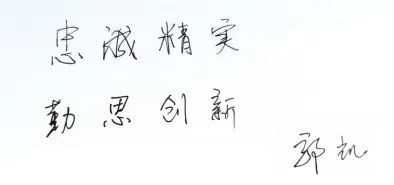 忠诚精实
勤思创新
郭凯